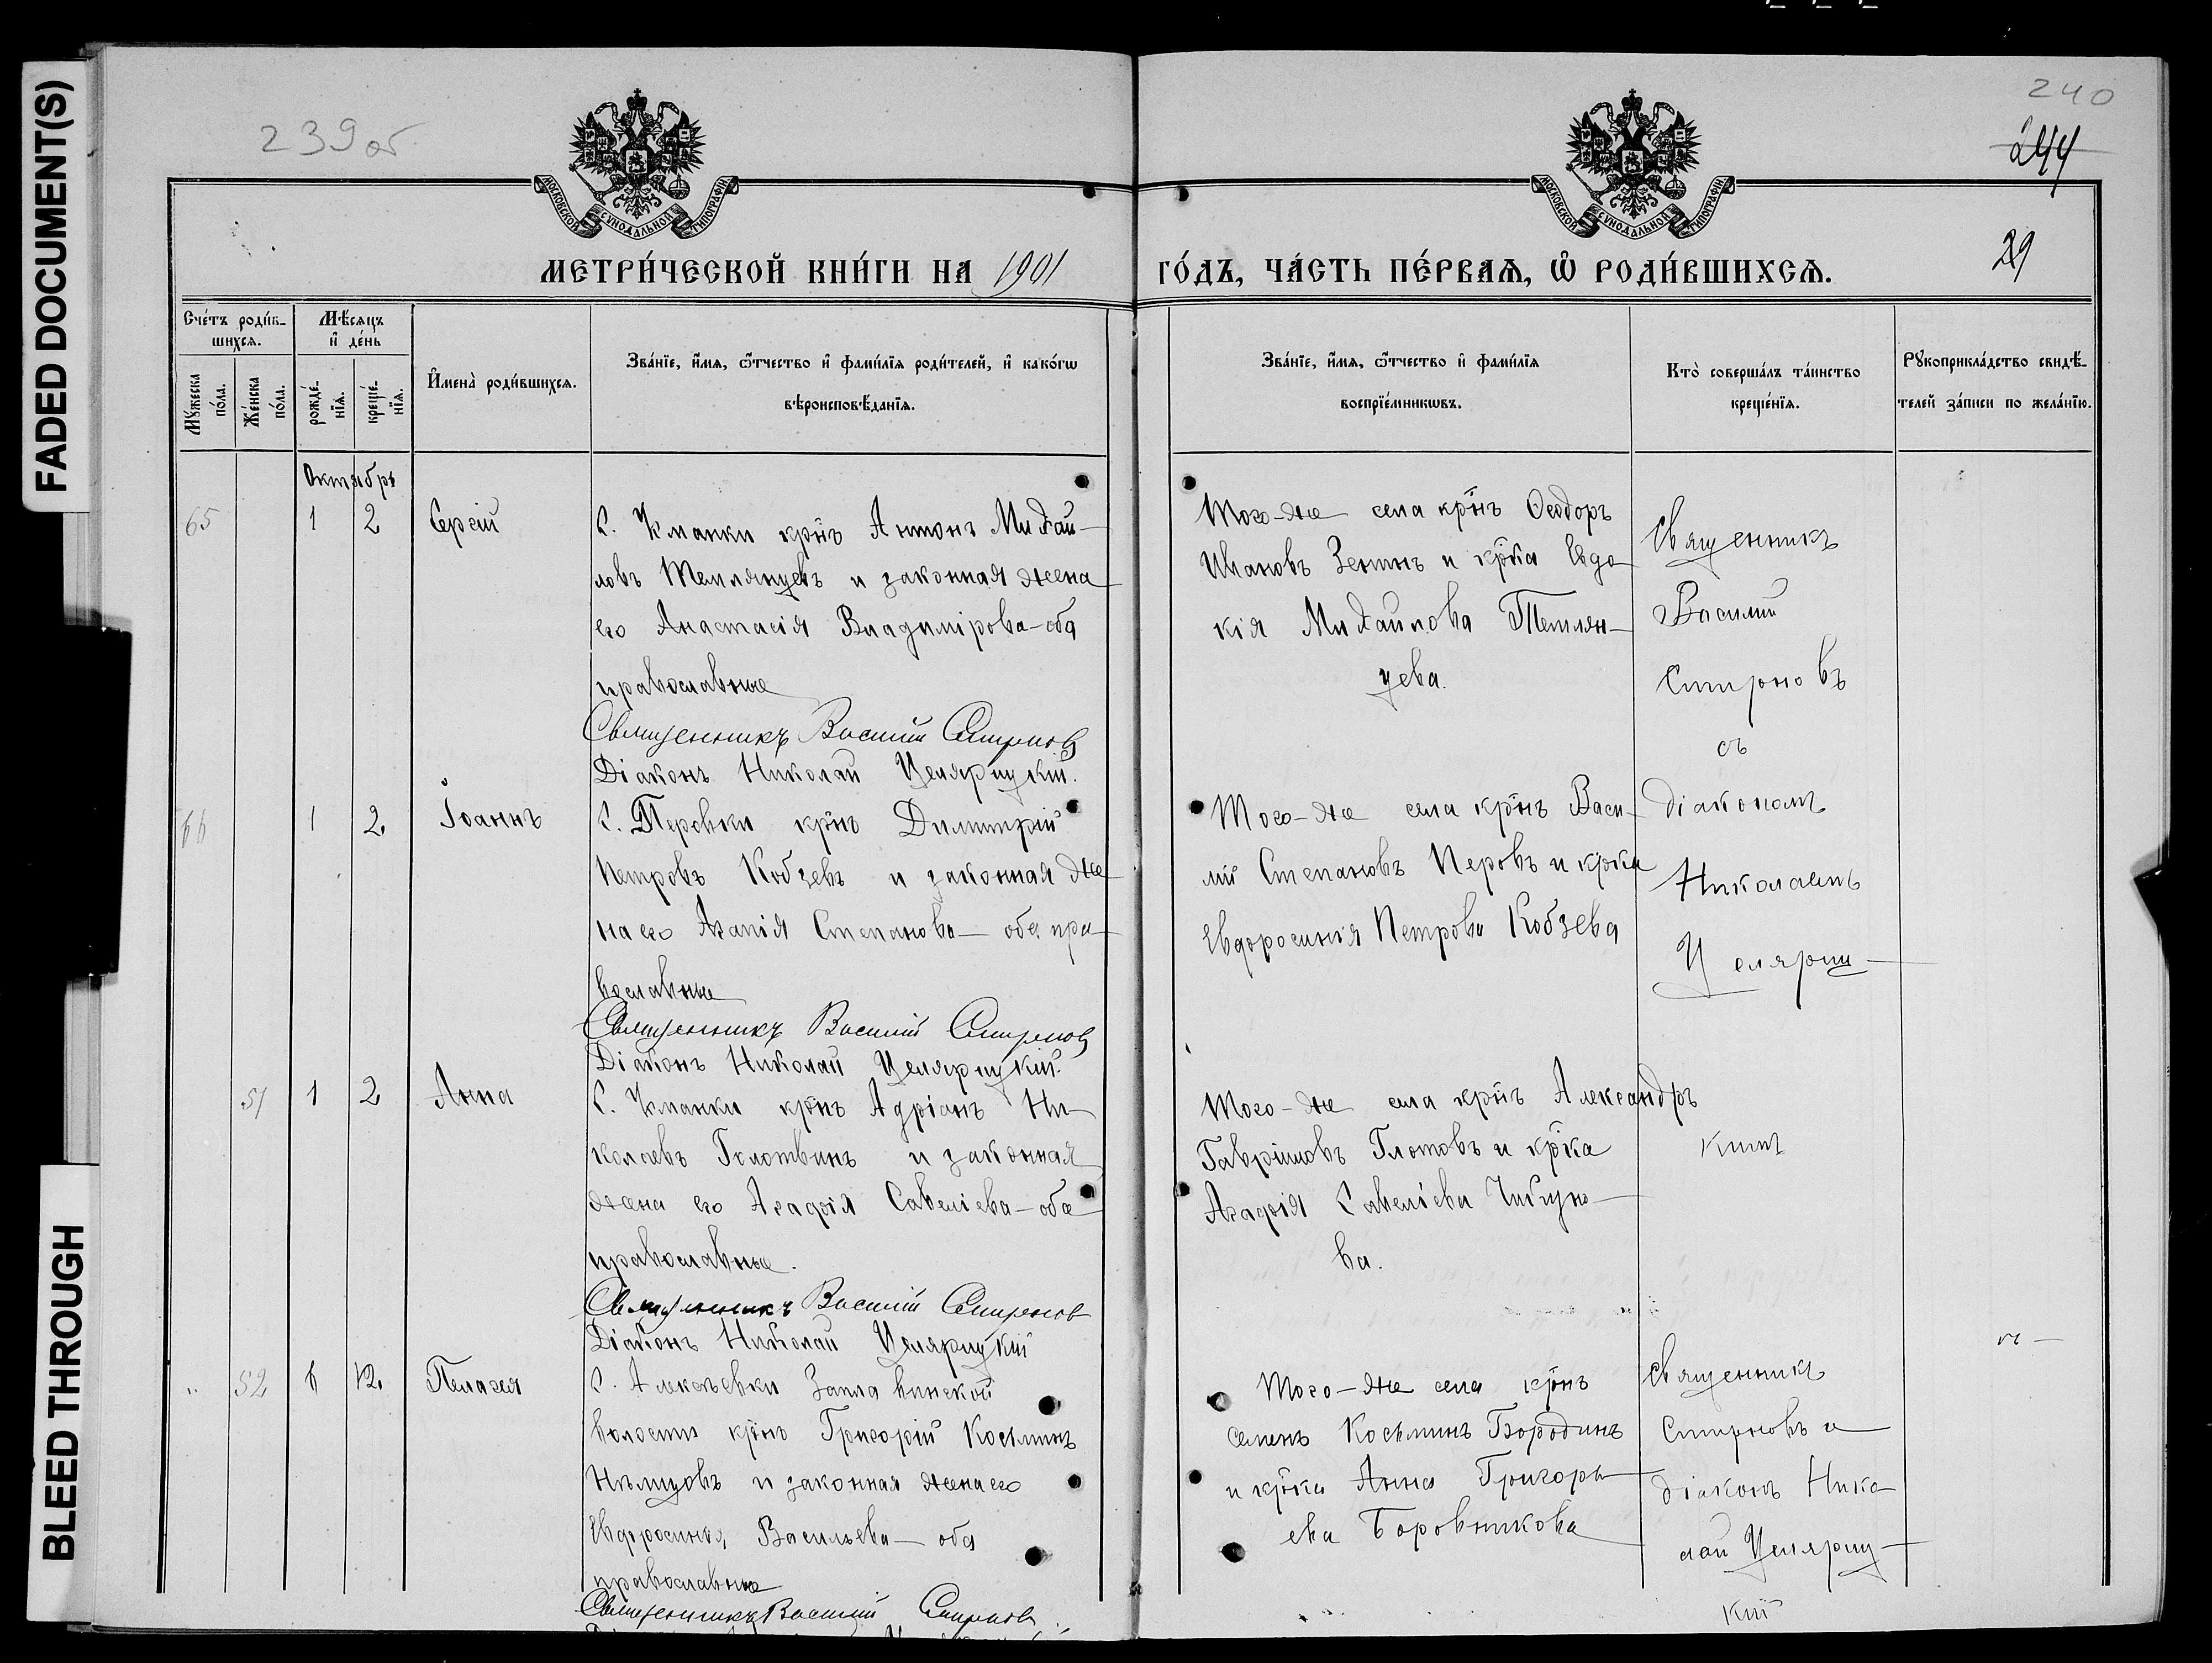 FADED DOCUMENT(S)
BLEED THROUGH
239об
240
244
29
МОСКОВСКОЙ СѴНОДАЛЬНОЙ ТИПОГРАФІИ.
МОСКОВСКОЙ СѴНОДАЛЬНОЙ ТИПОГРАФІИ.
МЕТРИ́ЧЕСКОЙ КНИ́ГИ НА 1901 ГО́ДЪ, ЧА́СТЬ ПЕ́РВАѦ, Ѡ҆ РОДИ́ВШИХСѦ.
Сче́тъ роди́в-
шихсѧ.
Мꙋ́жеска по́ла.
Же́нска по́ла.
Мѣ́сѧцъ
и҆ де́нь
рожде́-
нїѧ.
креще́-
нїѧ.
И҆мена̀ роди́вшихсѧ.
Зва́нїе, и҆́мѧ, ѻ҆́тчество и҆ фами́лїѧ роди́телей, и҆ како́гѡ
вѣроисповѣ́данїѧ.
Зва́нїе, и҆́мѧ, ѻ҆́тчество и҆ фами́лїѧ
воспрїе́мникѡвъ.
Кто̀ соверша́лъ та́инство
креще́нїѧ.
Рꙋкоприкла́дство свидѣ́-
телей за́писи по жела́нїю.
Октябрь
65 1 2 Сергій
С. Кманки крнъ Антонъ Михай-
ловъ Темлянцевъ и законная жена
его Анастасія Владимірова - оба
православные
Священникъ Василій Смирновъ
Діаконъ Николай Целярицкій.
Того-же села крнъ Ѳеодоръ
Ивановъ Зенинъ и крка Евдо
кія Михайлова Темлян-
цева.
Священникъ
Василій
Смирновъ
съ
діакономъ
Николаемъ
Целяриц-
кимъ
66 1 2 Іоаннъ
С. Перовки крнъ Димитрій
Петровъ Кобзевъ и законная же
на его Агапія Степанова - оба пра-
вославные
Священникъ Василій Смирновъ
Діаконъ Николай Целярицкій.
Того-же села крнъ Васи-
лій Степановъ Перовъ и крка
Евфросинія Петрова Кобзева
51 1 2 Анна
С. Кманки крнъ Адріанъ Ни-
колаевъ Голотвинъ и законная
жена его Агафія Савеліева - оба
православные.
Священникъ Василій Смирновъ
Діаконъ Николай Целярицкій
Того-же села крнъ Александръ
Гавріиловъ Глотовъ и крка
Агафія Савеліева Чигуно-
ва.
" 52 6 12 Пелагея
С. Алексѣевки Заплавинской
волости крнъ Григорій Косьминъ
Нѣмцовъ и законная жена его
Евфросинія Васильева - оба
православные
Священникъ Василій Смирновъ
Того-же села крнъ
Семенъ Косьминъ Бородинъ
и крка Анна Григорь-
ева Боровникова
Священникъ
Смирновъ и
діаконъ Нико
лай Целяриц-
кій